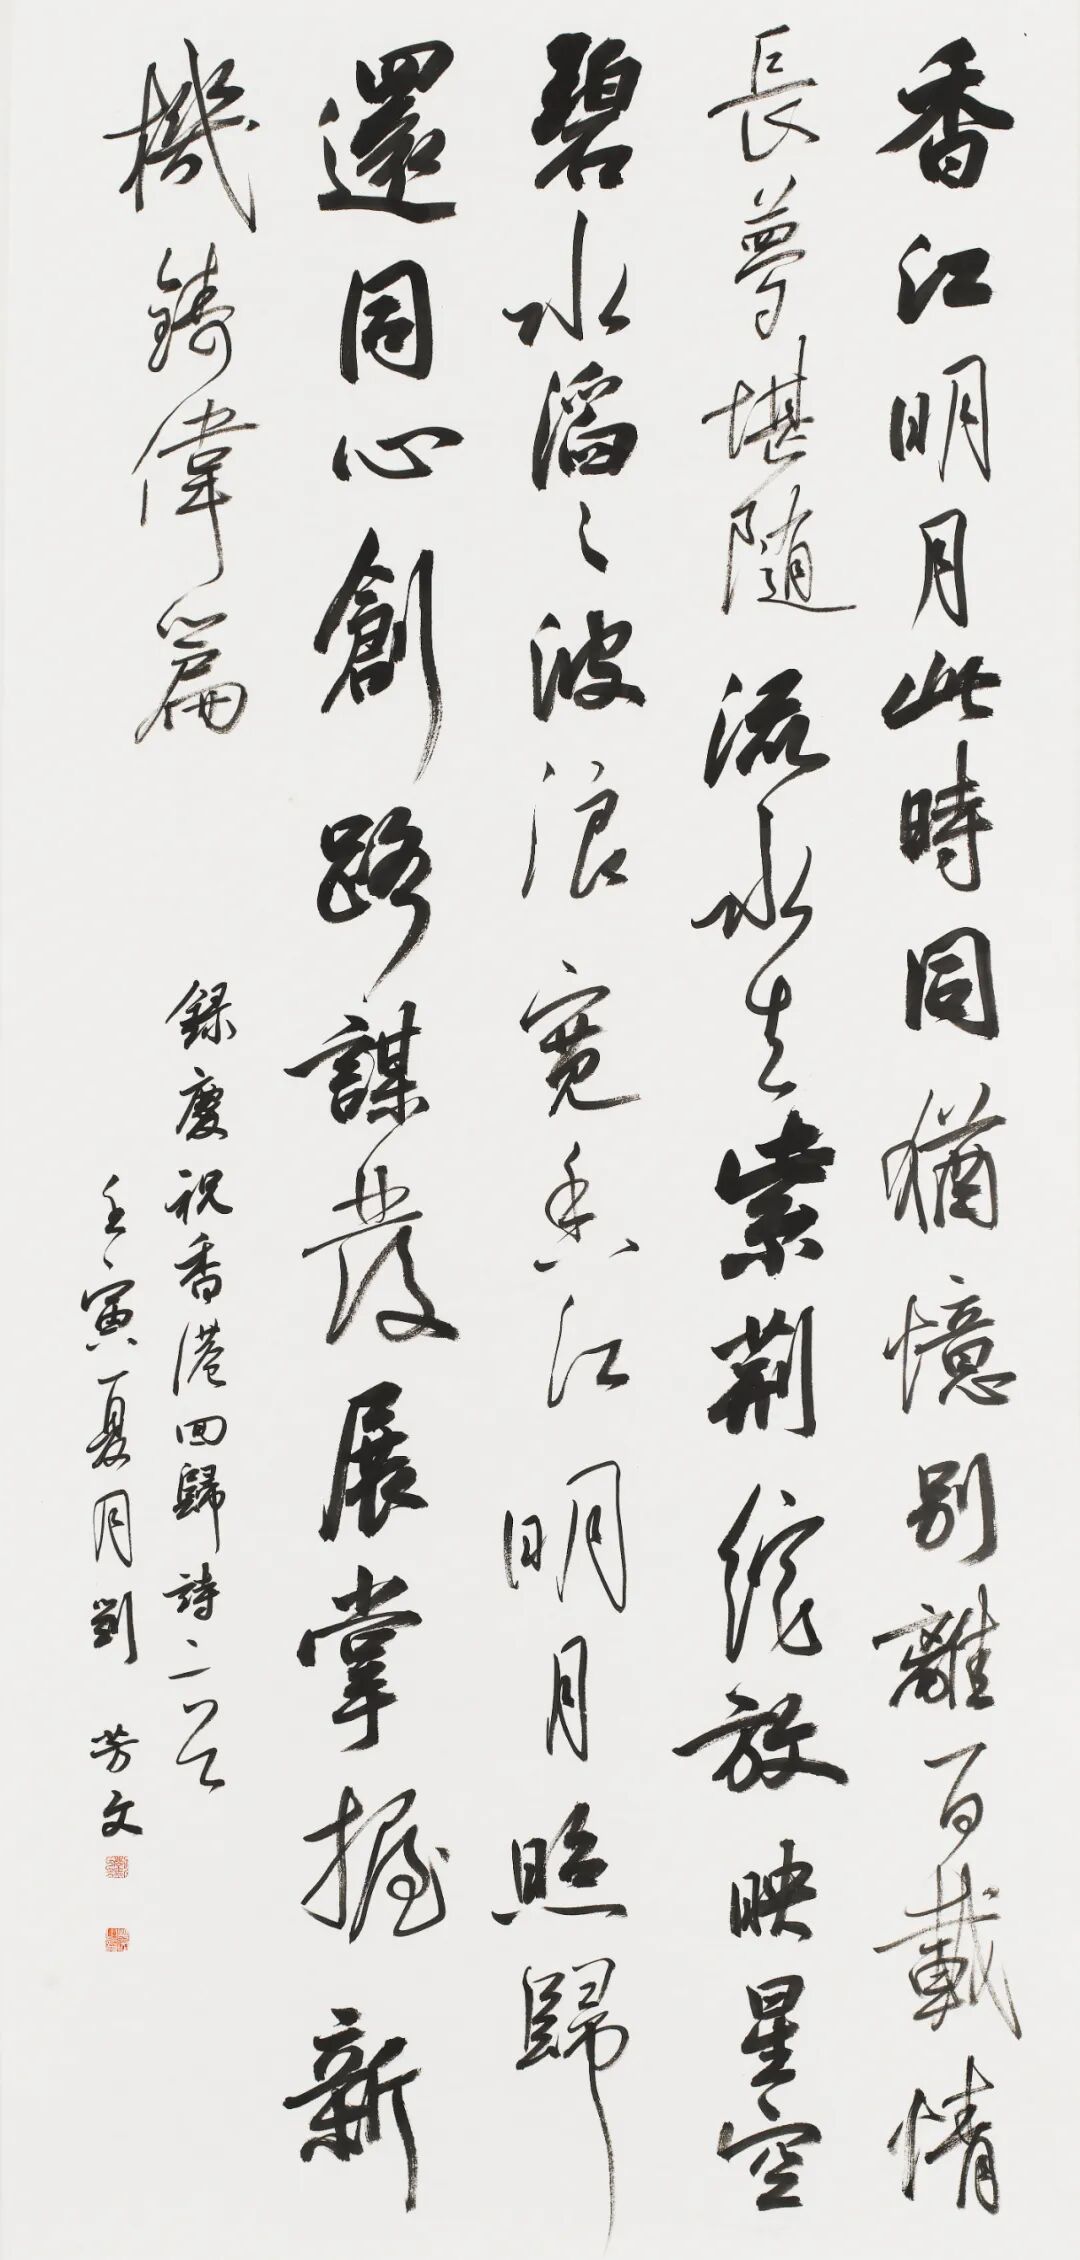 香江明月此時同猶憶別離百載情
長夢堪隨流水去紫荊綻放映星空
碧水滔々波浪寬香江明月照歸
還同心創路謀發展掌握新
機鑄偉篇
錄慶祝香港回歸詩二首
壬寅夏月劉芳文